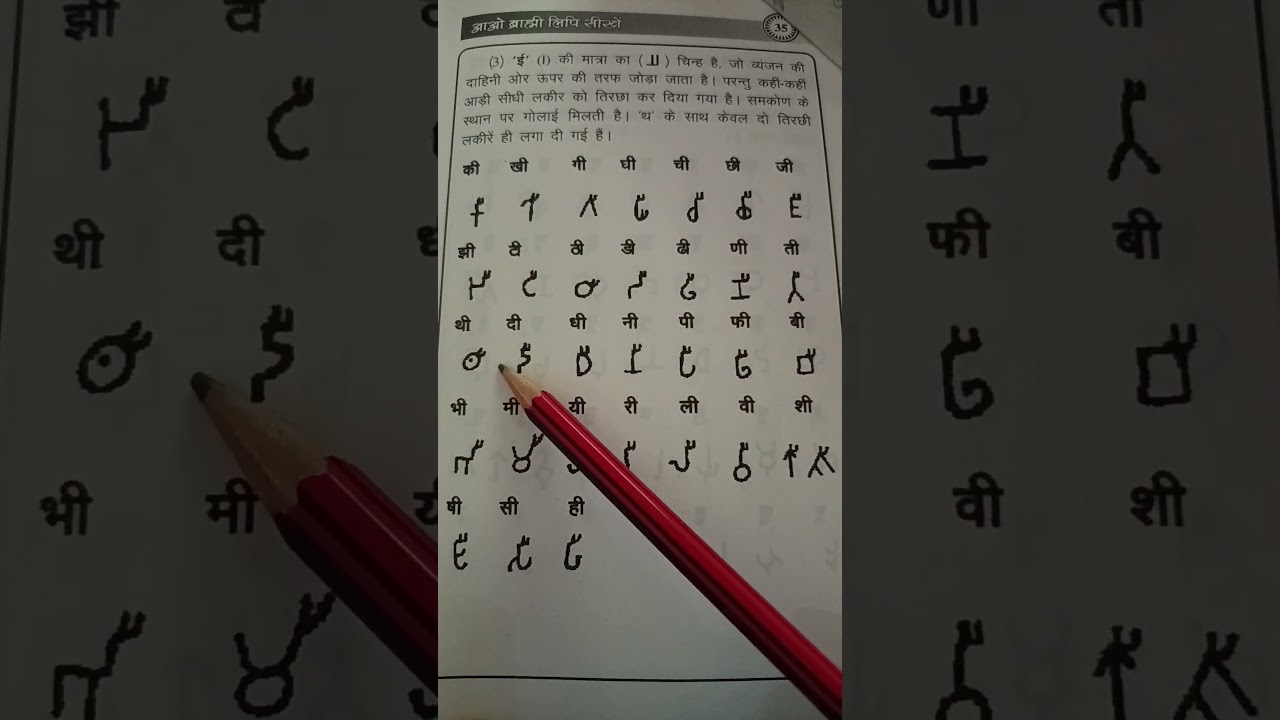 आओ ब्राह्मी लिपि सीखें 35
(3) 'ई' (ी) की मात्रा का ( ) चिन्ह है, जो व्यंजन की
दाहिनी ओर ऊपर की तरफ जोड़ा जाता है। परन्तु कहीं-कहीं
आड़ी सीधी लकीर को तिरछा कर दिया गया है। समकोण के
स्थान पर गोलाई मिलती है। 'थ' के साथ केवल दो तिरछी
लकीरें ही लगा दी गई हैं।
की खी गी घी ची छी जी
𑀓𑀻 𑀔𑀻 𑀕𑀻 𑀖𑀻 𑀘𑀻 𑀙𑀻 𑀚𑀻
झी टी ठी डी ढी णी ती
𑀛𑀻 𑀝𑀻 𑀞𑀻 𑀟𑀻 𑀠𑀻 𑀡𑀻 𑀢𑀻
थी दी धी नी पी फी बी
𑀣𑀻 𑀤𑀻 𑀥𑀻 𑀦𑀻 𑀧𑀻 𑀨𑀻 𑀩𑀻
भी मी यी री ली वी शी
𑀪𑀻 𑀫𑀻 𑀭𑀻 𑀮𑀻 𑀯𑀻 𑀰𑀻
षी सी ही
𑀱𑀻 𑀲𑀻 𑀳𑀻